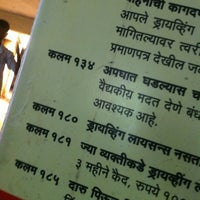 वाहनाची कागदप
आपले ड्रायव्हिंग
मागितल्यावर त्वरी
प्रमाणपत्र देखील ज
कलम १३४ अपघात घडल्यास च
वैद्यकीय मदत देणे बंध
आवश्यक आहे.
कलम १८० ड्रायव्हिंग लायसन्स नसत
कलम १८१ ज्या व्यक्तीकडे ड्रायव्हींग ल
३ महीने कैद, रुपये १०
कलम १८५ दारु पिऊन